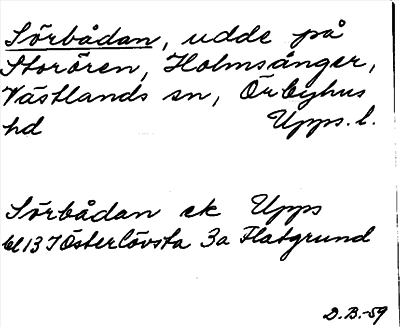 Sörbådan, udde på
Storören, Holmsånger,
Västlands sn, Örbyhus
hd Upps. l.
Sörbådan ek Upps
bl 13 J Österlövsta 3a Flatgrund
D.B.-59